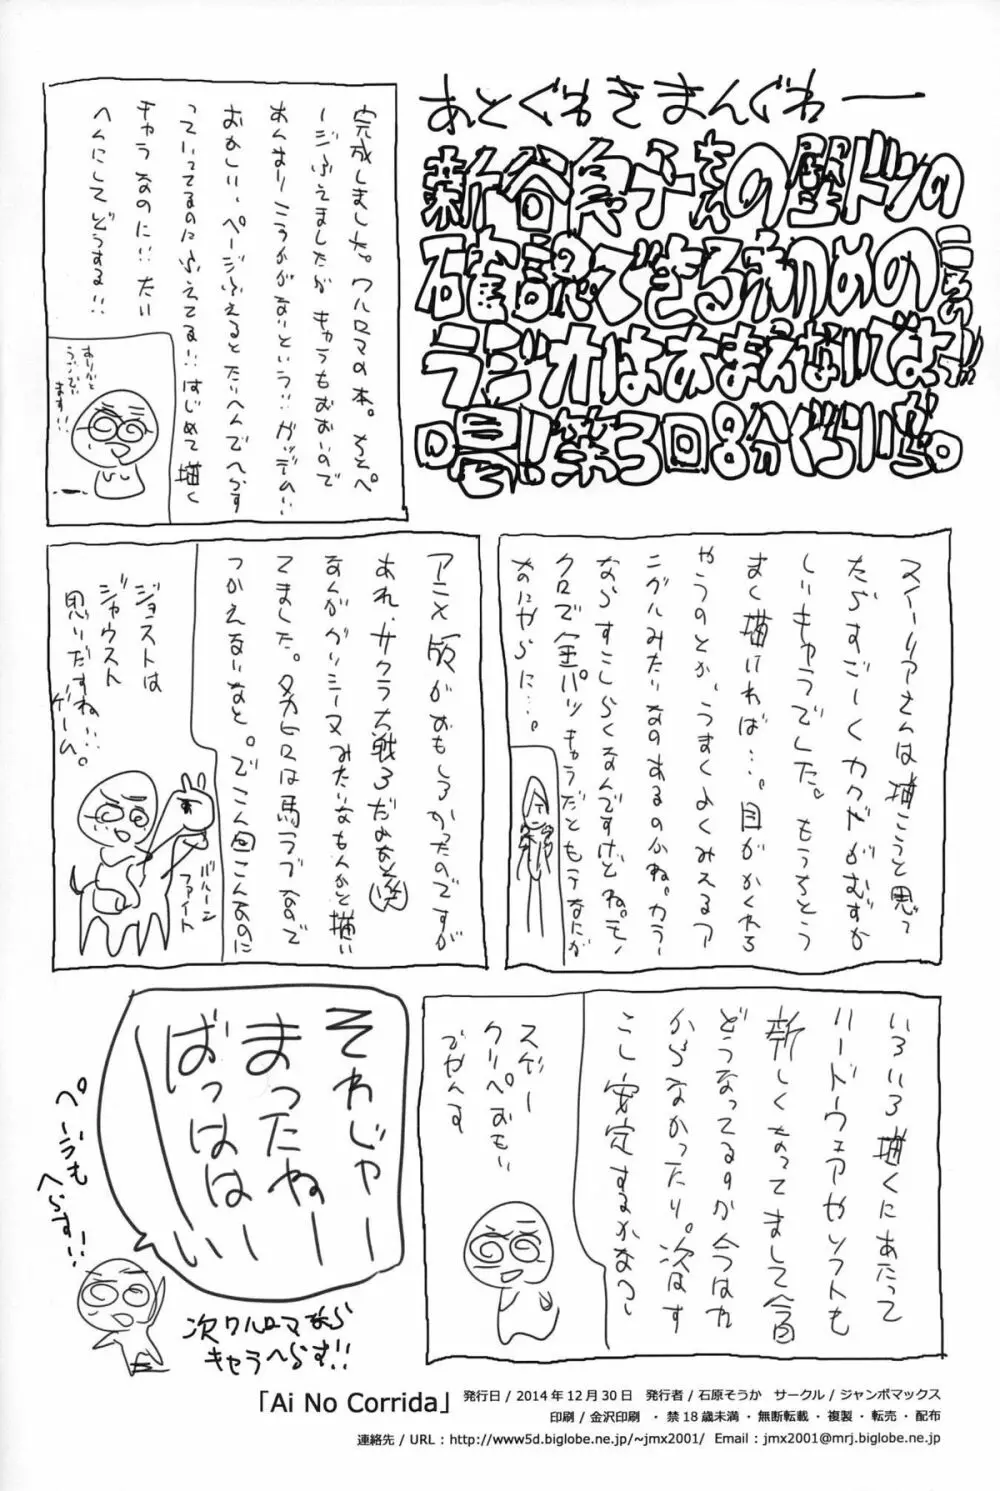 あとぐわきまんぐわー
新谷良子さんの壁ドンの
確認のできる初めての
ラジオはおまえないでよっ!!
の
!!第3回8分ぐらい
完成しました。ワルロマの本。もとぺ
ージふえましたがキャラもおおいので
あんまりこうかがないという…ガッデム!!
おかしい、ページふえるとたいへんでへらす
っていってるのにふえてる!!はじめて描く
キャラなのに!!たい
へんにしてどうする!!
ありがと
うござい
ます!!
スイーリアさんは描こうと思っ
たらすごーくカクドがむずか
しいキャラでした。もうちょっとう
まく描ければ…。目がかくれる
やうのとか、うまくよくみえるア
ングルみたいなのあるのかね。カラー
ならすこしらくなんですけどね。モノ
クロで金パツキャラだともうなにが
なにやらに…。
アニメ版がおもしろかったのですが
あれ、サクラ大戦3だよなと(笑)
なんかグリシーヌみたいなもんかと描い
てました。タカヒロは馬ラブなので
つかえるなと。でこん回こんなのに
ジョストは
ジャウスト
思いだすね…
ゲーム。
バルーン
ファイト
いろいろ描くにあたって
ハードウェアやソフトも
新しくなってまして今回
どうなってるのか今はわ
からなかったり。次はす
こし安定するかなっ
スゲー
クリペおもい
でやんす
それじゃー
まったねー
ばっはは―い
ページも
へらす!!
次ワルロマなら
キャラへらす!!
「Ai No Corrida」 発行日 / 2014 年 12 月 30 日　発行者 / 石原そうか　サークル / ジャンボマックス
印刷 / 金沢印刷　・ 禁 18 歳未満 ・ 無断転載 ・ 複製 ・ 転売 ・ 配布
連絡先 / URL : http://www5d.biglobe.ne.jp/~jmx2001/　Email : jmx2001@mrj.biglobe.ne.jp